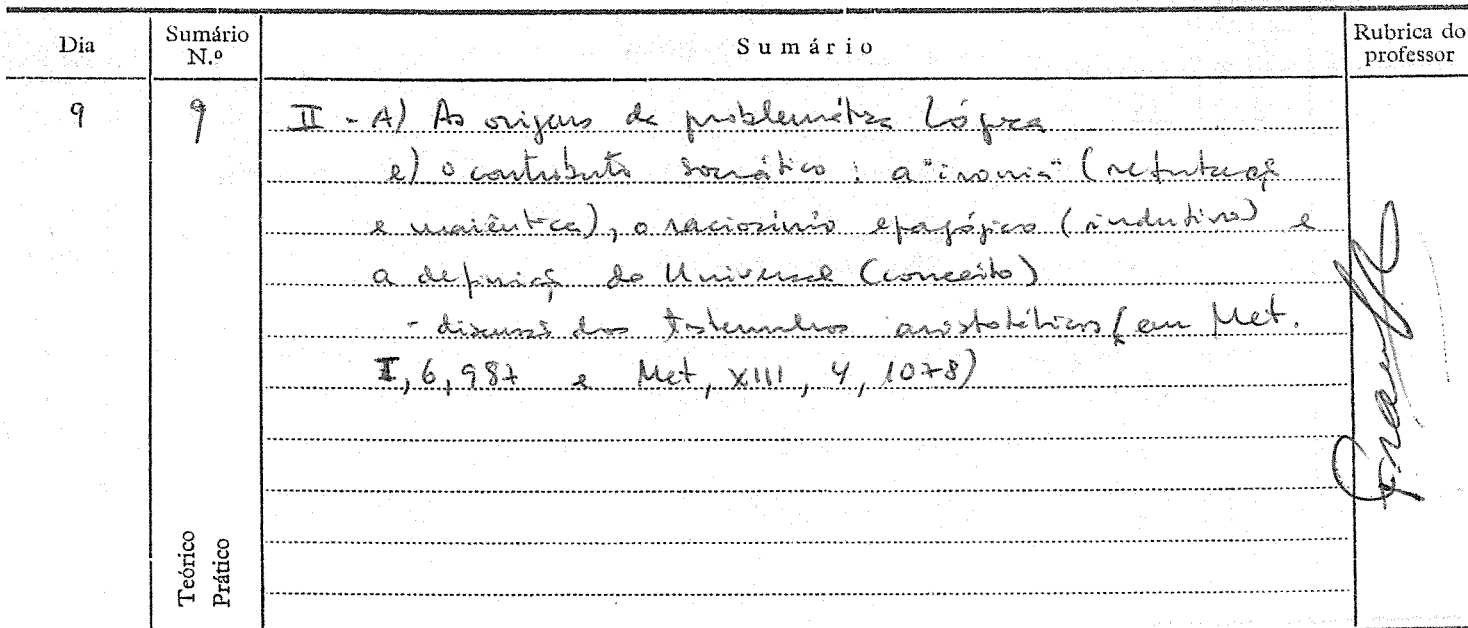 Dia
Sumário N.º
Sumário
Rubrica do professor
9
9
II - A) As origens da problemática Lógica
e) o contributo socrático : a "ironia" (refutação
e maiêutica), o raciocínio epagógico (indutivo) e
a definição do Universal (conceito)
- discussão dos testemunhos aristotélicos (em Met.
I, 6, 987 e Met, XIII, 4, 1078)
Teórico
Prático